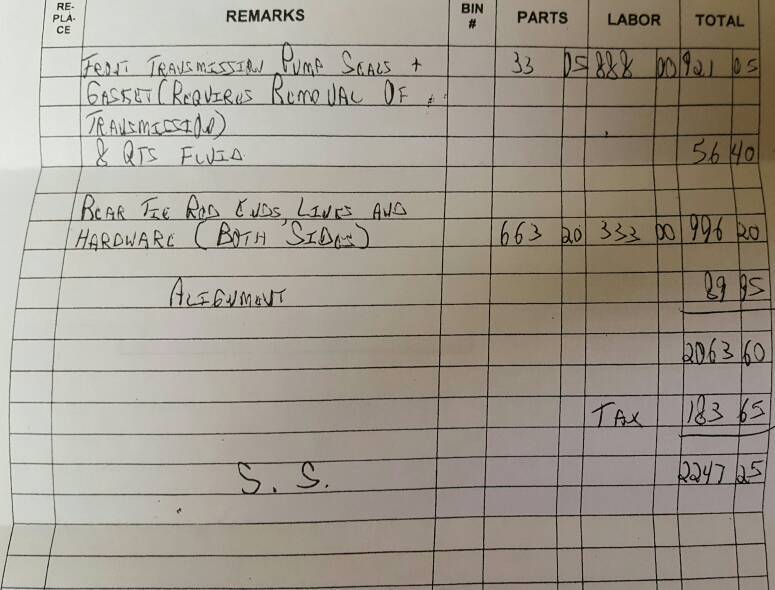 RE-PLA-CE REMARKS BIN # PARTS LABOR TOTAL
FRONT TRANSMISSION PUMP SEALS + 33 05 888 00 921 05
GASKET (REQUIRES REMOVAL OF
TRANSMISSION)
8 QTS FLUID 56 40
REAR TIE ROD ENDS, LINKS AND
HARDWARE (BOTH SIDES) 663 20 333 00 996 20
ALIGNMENT 89 95
2063 60
TAX 183 65
S. S. 2247 25